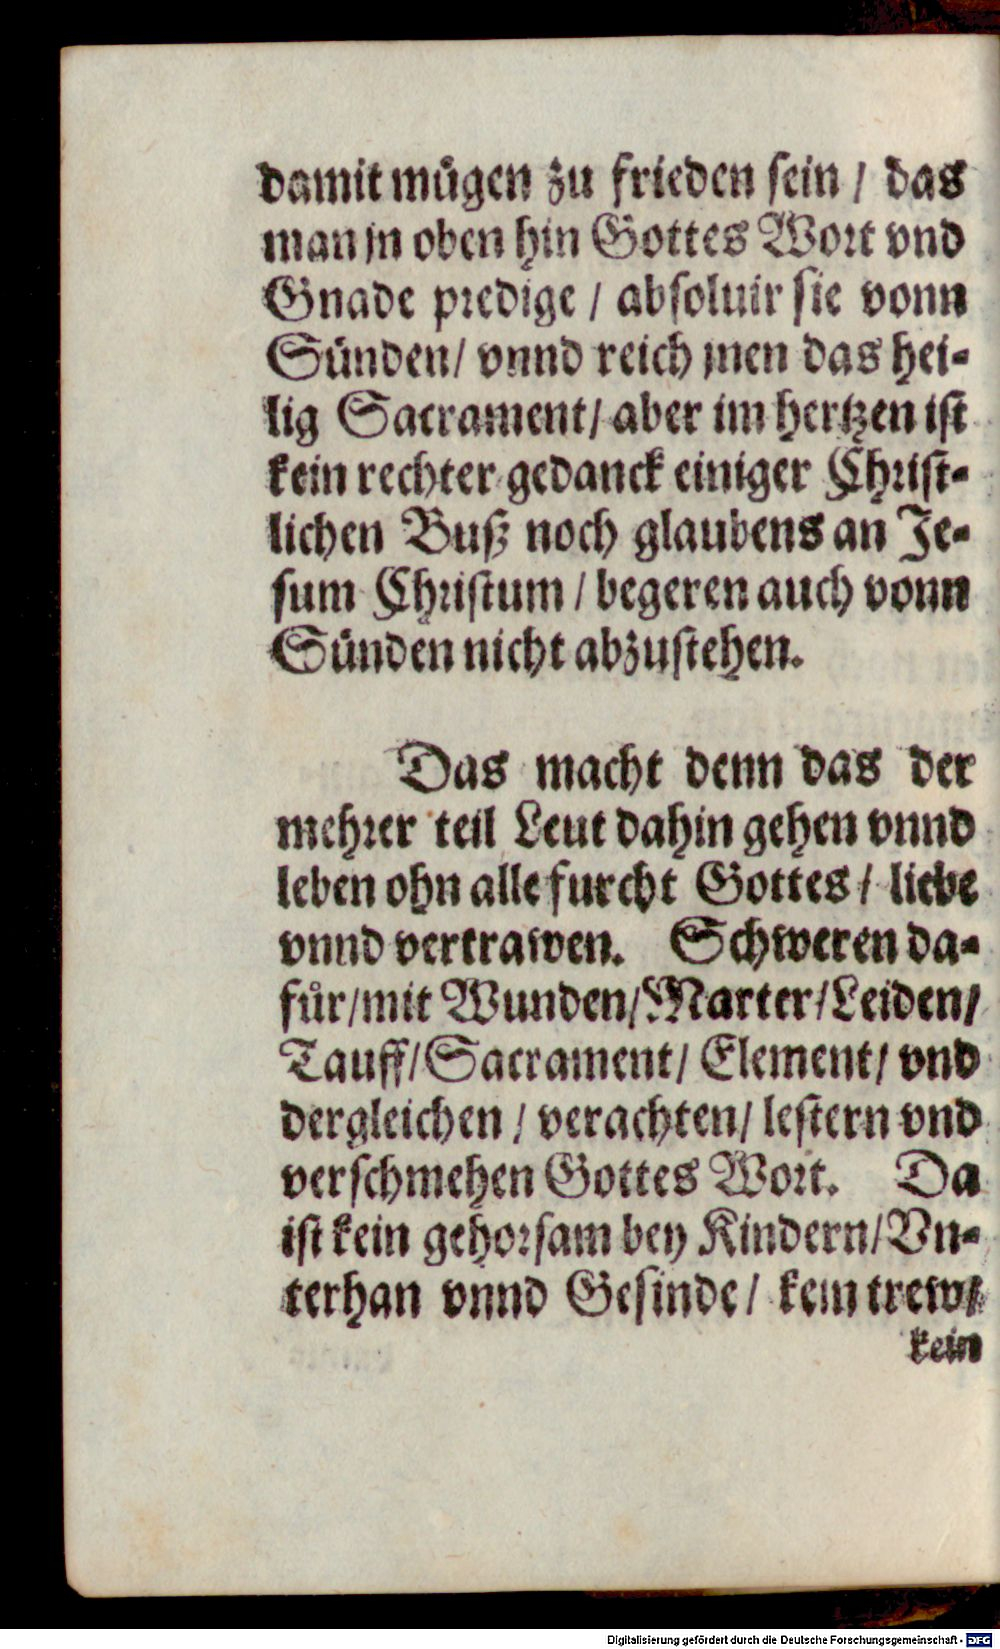 damit mügen zu frieden sein / das
man jn oben hin Gottes Wort vnd
Gnade predige / absoluir sie vonn
Sünden / vnnd reich jnen das hei-
lig Sacrament / aber im hertzen ist
kein rechter gedanck einiger Christ-
lichen Buß noch glaubens an Je-
sum Christum / begeren auch vonn
Sünden nicht abzustehen.
Das macht denn das der
mehrer teil Leut dahin gehen vnnd
leben ohn alle furcht Gottes / liebe
vnnd vertrawen. Schweren da-
für / mit Wunden / Marter / Leiden /
Tauff / Sacrament / Element / vnd
dergleichen / verachten / lestern vnd
verschmehen Gottes Wort. Da
ist kein gehorsam bey Kindern / Vn-
terhan vnnd Gesinde / kein trew /
kein
Digitalisierung gefördert durch die Deutsche Forschungsgemeinschaft - DFG